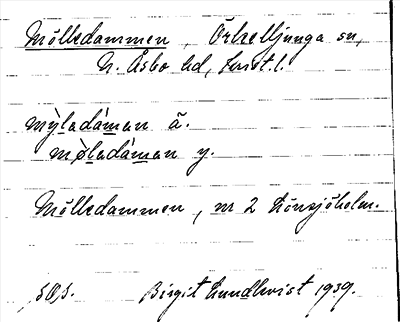 Mölledammen, Örkelljunga sn,
N. Åsbo hd, Krist. l.
mỳladáman ä.
mø̀ladáman y.
Mölledammen, nr 2 Lönsjöholm.
Birgit Lundkvist 1939.